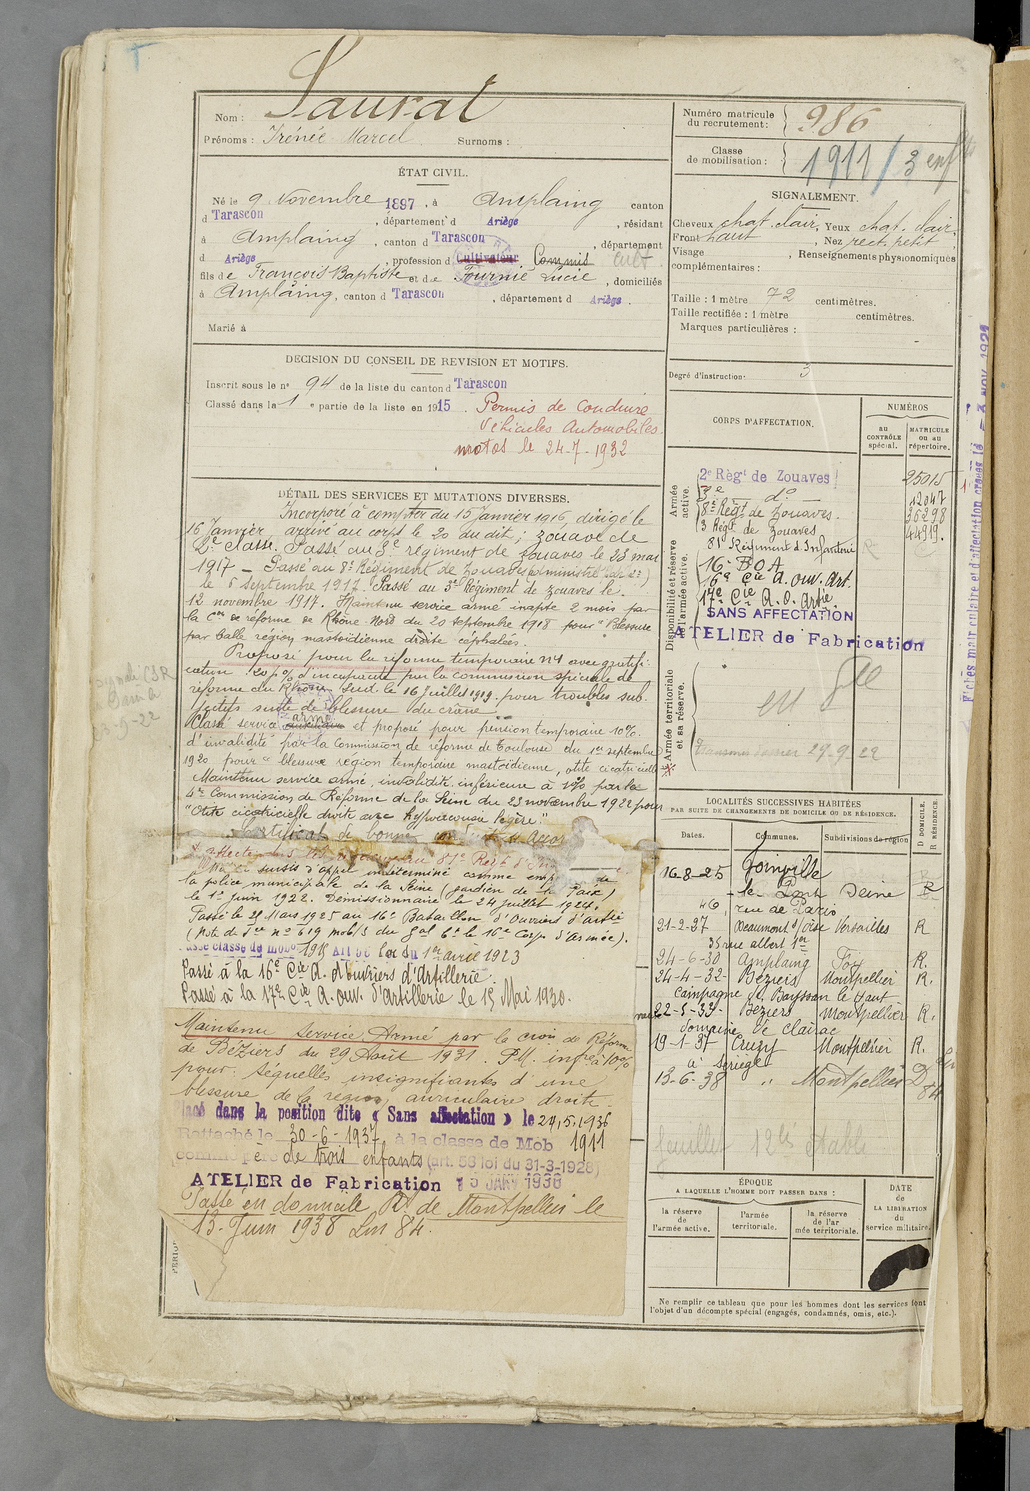 Nom : Saurat
Prénoms : Irénée Marcel Surnoms :
ÉTAT CIVIL.
Né le 9 Novembre 1897, à Amplaing canton
d Tarascon, département d Ariège, résidant
à Amplaing, canton d Tarascon, département
d Ariège, profession d Cultivateur Commis Cult
fils de François Baptiste et de Fournié Lucie, domiciliés
à Amplaing, canton d Tarascon, département d Ariège.
Marié à
DÉCISION DU CONSEIL DE REVISION ET MOTIFS.
Inscrit sous le n° 94 de la liste du canton d Tarascon
Classé dans la 1e partie de la liste en 1915.
Permis de Conduire
Véhicules Automobiles
motos le 24-7-1932
DÉTAIL DES SERVICES ET MUTATIONS DIVERSES.
Incorporé à compter du 15 Janvier 1916, dirigé le
16 Janvier arrivé au corps le 20 du dit, zouave de
2e classe. Passé au 3e régiment de zouaves le 23 mars
1917 – Passé au 8e Régiment de Zouaves
le 5 septembre 1917. Passé au 3e Régiment de zouaves le
12 novembre 1917. Maintenu service armé inapte 2 mois par
la Con de réforme de Rhône-Nord du 20 septembre 1918 pour "Blessure
par balle région mastoïdienne droite céphalées.
Proposé pour la réforme temporaire n°1 avec gratifi-
cation 20 % d'incapacité par la commission spéciale de
réforme du Rhône Sud le 16 juillet 1919 pour troubles sub-
jectifs suite de blessure du crâne.
Classé service armé auxiliaire et proposé pour pension temporaire 10%
d'invalidité par la Commission de réforme de Toulouse du 1er septembre
1920 pour "blessure région temporaire mastoïdienne, otite cicatricielle
Maintenu service armé, invalidité inférieure à 10% par la
4e Commission de Réforme de la Seine du 23 novembre 1922 pour
"Otite cicatricielle droite avec hypoacousie légère."
Certificat de bonne conduite accordé
Mis en sursis d'appel indéterminé comme emp de
la police municipale de la Seine (gardien de la Paix)
le 1er Juin 1922. Démissionnaire le 24 juillet 1924.
Passé le 21 Mars 1925 au 16e Bataillon d'Ouvriers d'artie
(Note de Sce n° 619 mob/3 du Gal Ct le 16e Corps d'Armée).
Passé classe de mobon 1918 Art 58 loi du 1er avril 1923
Passé à la 16e Cie A. d'ouvriers d'Artillerie.
Passé à la 17e Cie A. ouv. d'artillerie le 15 Mai 1930.
Maintenu Service Armé par la con de Réforme
de Béziers du 29 Août 1931. P.M. infre à 10%
pour: Séquelles insignifiantes d'une
blessure de la région auriculaire droite.
Placé dans la position dite « Sans affectation » le 24.5.1936
Rattaché le 30-6-1937 à la classe de Mob 1911
(comme père de trois enfants (art. 58 loi du 31-3-1928)
ATELIER de Fabrication 15 JANV 1938
Passé en domicile Rt de Montpellier le
13 Juin 1938 Lm 84.
Numéro matricule
du recrutement : 986
Classe
de mobilisation : 1911 / 3 enfts
SIGNALEMENT.
Cheveux chat. clair, Yeux chat. clair,
Front haut, Nez rect. petit
Visage , Renseignements physionomiques
complémentaires :
Taille : 1 mètre 72 centimètres.
Taille rectifiée : 1 mètre centimètres.
Marques particulières :
Degré d'instruction : 3
CORPS D'AFFECTATION.
NUMÉROS
AU CONTRÔLE spécial.
MATRICULE ou au répertoire.
Armée active.
2e Régt de Zouaves 25015
3e do 12047
8e Régt de Zouaves. 36298
3 Régt de Zouaves 44319.
Disponibilité et réserve de l'armée active.
81 Régiment d'Infanterie
16e B O A
16e Cie A. ouv. Art.
17e Cie A. O. Artie.
SANS AFFECTATION
ATELIER de Fabrication
Armée territoriale et sa réserve.
LOCALITÉS SUCCESSIVES HABITÉES
PAR SUITE DE CHANGEMENTS DE DOMICILE OU DE RÉSIDENCE.
Dates. Communes. Subdivisions de région
D DOMICILE.
R RÉSIDENCE.
16-8-25 Joinville
le Pont Seine R
46, rue de Paris
21-2-27 Beaumont s/Oise Versailles R
35 rue albert 1er
24-6-30 Amplaing Foix R.
24-4-32 Béziers Montpellier R.
Campagne de Bayssan le Haut
22-5-33 Béziers Montpellier R.
domaine de Clairac
19-1-37 Cruzy Montpellier R.
à Sériège
13-6-38 " Montpellier D
ÉPOQUE
A LAQUELLE L'HOMME DOIT PASSER DANS :
la réserve de l'armée active.
l'armée territoriale.
la réserve de l'armée territoriale.
DATE de LA LIBÉRATION du service militaire.
Ne remplir ce tableau que pour les hommes dont les services font
l'objet d'un décompte spécial (engagés, condamnés, omis, etc.).